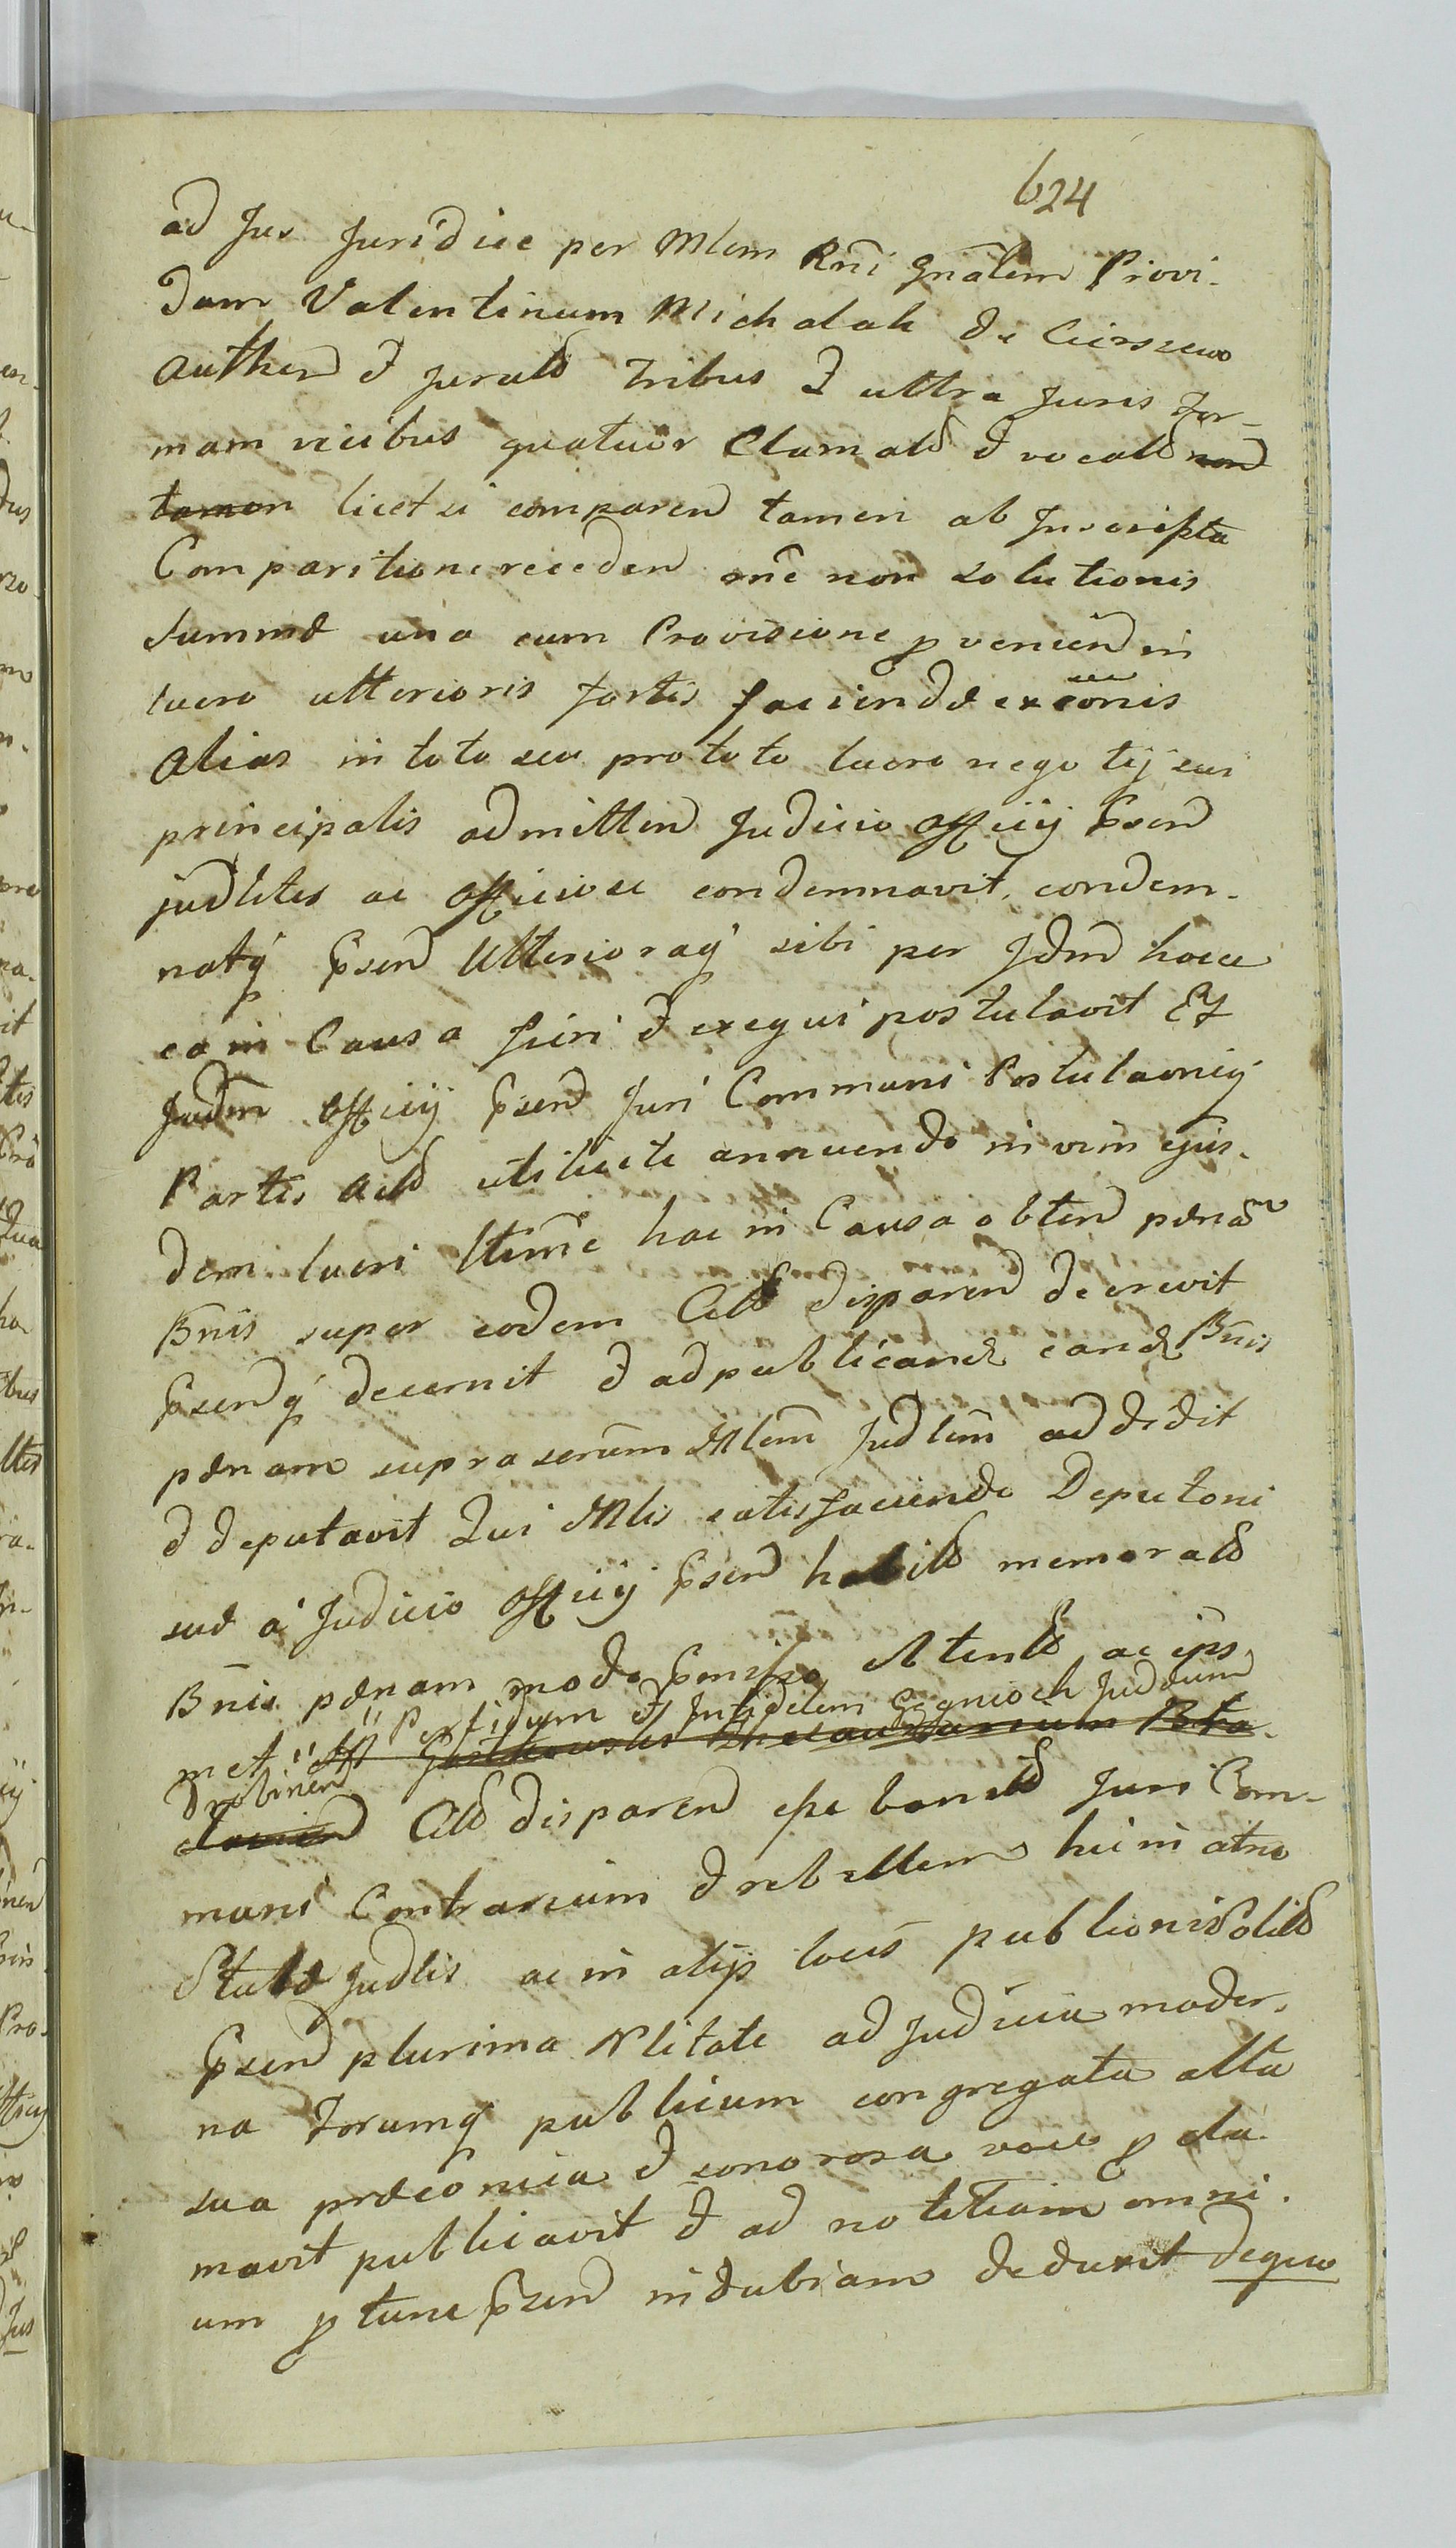 624
ad Jus Juridice per Mlem Rni Gnalem Provi-
dum Valentinum Michalak de Cierszewo
Authen et jurald tribus et ultra Juris for-
mam vicibus quatuor Clamald et vocald non
tamen licet si comparen tamen ab Inscripta
Comparitione receden rne non solutionis
Summæ una cum Provisione provenien in
lucro ulterioris fortis faciendæ exeonis
Alias in toto seu pro toto lucro negotij sui
principalis admitten Judicio Officij Psend
judlites ac Officiose condemnavit, condem-
natq Psend Ulterioraq sibi per Jdm hocce
ea in Causa fieri et exequi postulavit Et
Judm Officij Psend Juri Communi Postulaoniq
Partis Actd utilicite annuendo in vim ejus-
dem lucri ltime hac in Causa obten pænam
Bnis super eodem Citd disparen decrevit
Psendq decernit et ad publicand eand Bnis
pænam suprascrum Mlem Judlem addidit
et deputavit Qui Mlis satisfaciendo Deputoni
suæ a Judicio Officij Psend habild memorald
Bnis pænam modo Pmisso Atentd ac ips
Perfidum et Infidelem Judæum
met
Drobinen
Citd disparen esse bannitd Juri Com-
muni Contrarium et rebellem hic in atrio
Stubæ Judlis ac in alijs locis publionis solitd
Psend plurima Nlitate ad Judicia moder-
na Forumq publicum congregata alta
sua præconica et sonorosa voce procla-
mavit publicavit et ad notitiam omni-
um pro tunc Psend indubiam deduxit de quo